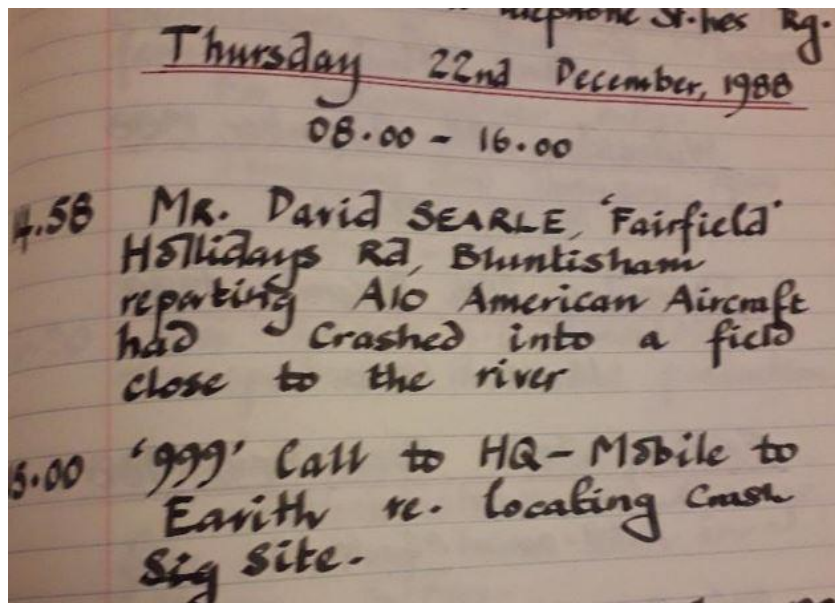 Telephone St. Ives Rg.
Thursday 22nd December, 1988
08.00 - 16.00
4.58 Mr. David SEARLE, 'Fairfield'
Hollidays Rd, Bluntisham
reporting A10 American Aircraft
had Crashed into a field
close to the river
5.00 '999' Call to HQ - Mobile to
Earith re. locating Crash
Site.